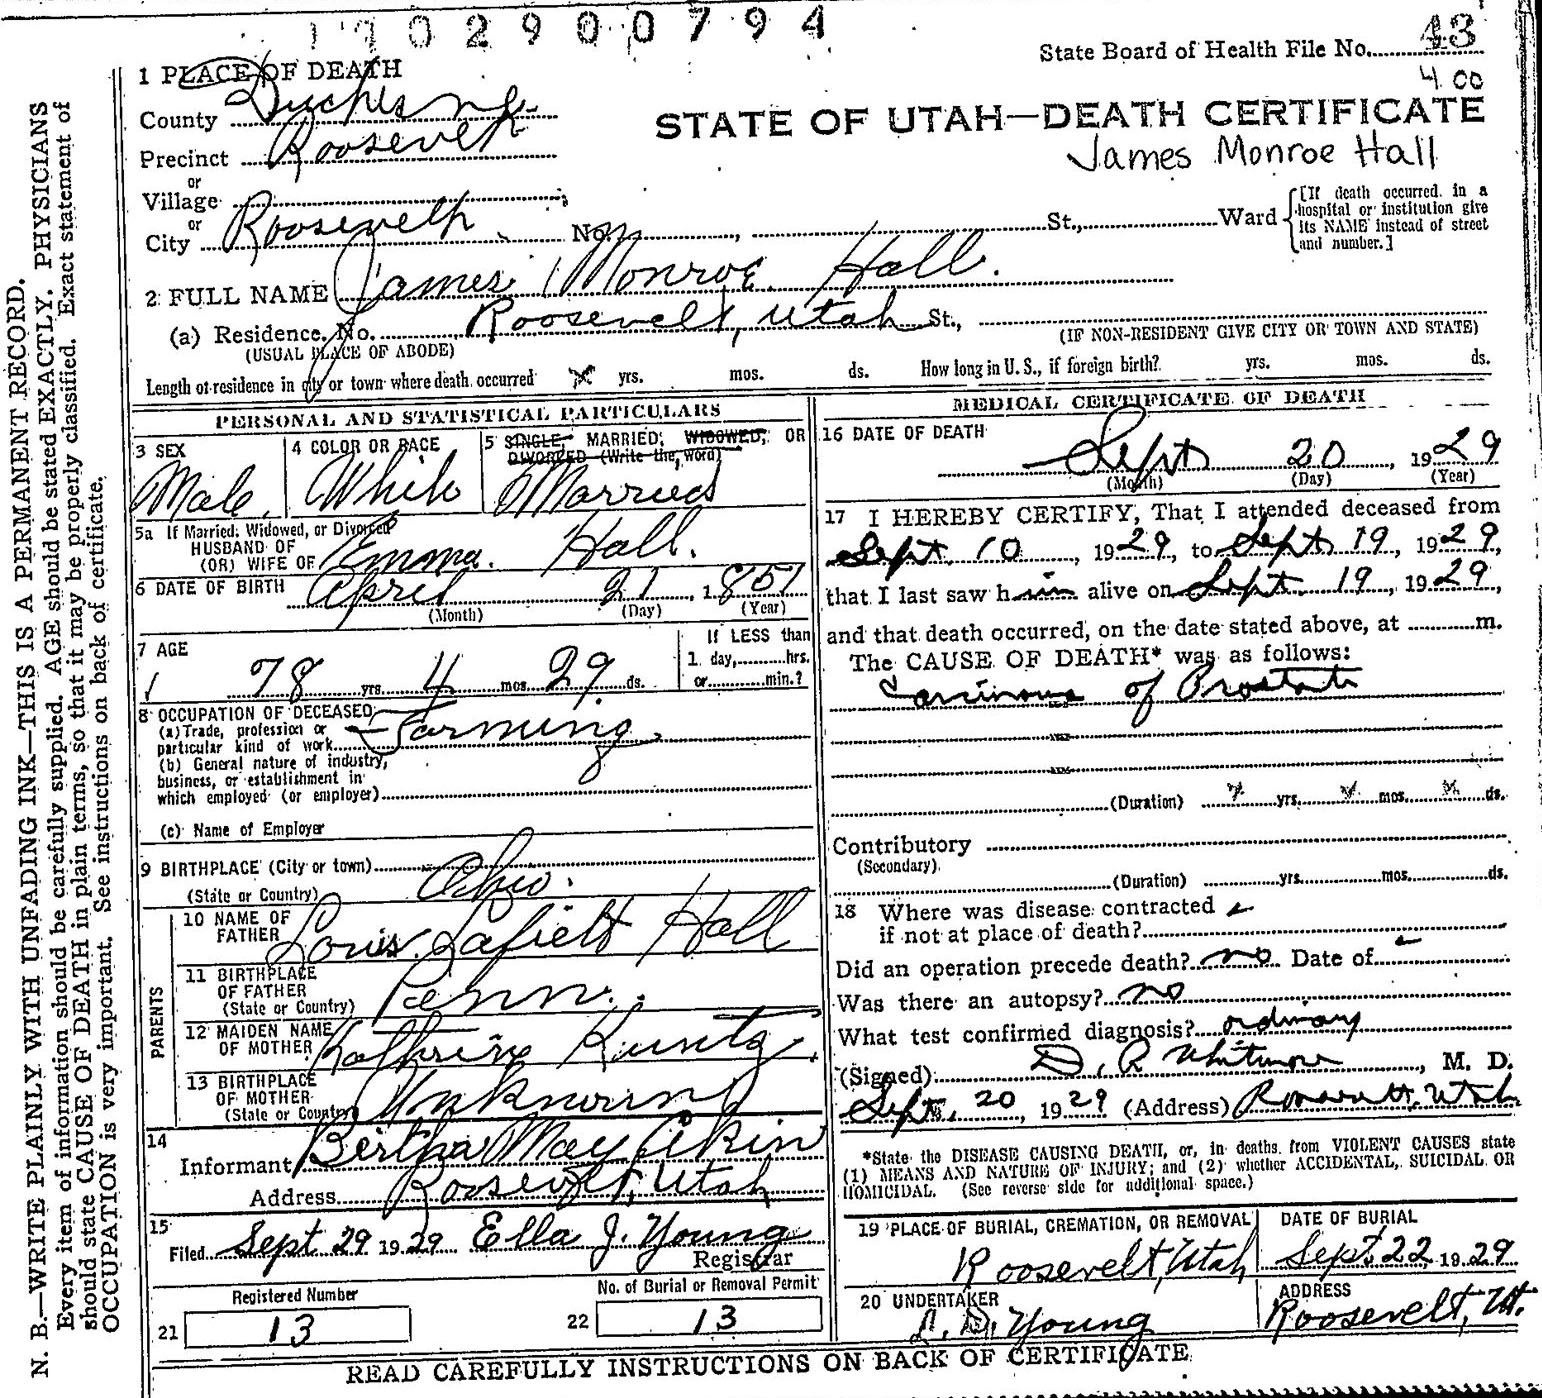 1 1 0 2 9 0 0 7 9 4
State Board of Health File No. 43
4 00
1 PLACE OF DEATH
County Duchesne
STATE OF UTAH—DEATH CERTIFICATE
Precinct Roosevelt
James Monroe Hall
or
Village
or
City Roosevelt No. , St., Ward
[If death occurred in a hospital or institution give its NAME instead of street and number.]
2 FULL NAME James Monroe Hall.
(a) Residence. No. Roosevelt, Utah St.,
(USUAL PLACE OF ABODE)
(IF NON-RESIDENT GIVE CITY OR TOWN AND STATE)
Length of residence in city or town where death occurred yrs. mos. ds. How long in U. S., if foreign birth? yrs. mos. ds.
PERSONAL AND STATISTICAL PARTICULARS
3 SEX
Male.
4 COLOR OR RACE
White
5 SINGLE, MARRIED, WIDOWED, OR
DIVORCED (Write the word)
Married
5a If Married, Widowed, or Divorced
HUSBAND OF
(OR) WIFE OF Emma. Hall.
6 DATE OF BIRTH April 21, 1851
(Month) (Day) (Year)
7 AGE
78 yrs. 4 mos. 29 ds.
If LESS than
1 day, hrs.
or min.?
8 OCCUPATION OF DECEASED
(a) Trade, profession or
particular kind of work Farming
(b) General nature of industry,
business, or establishment in
which employed (or employer)
(c) Name of Employer
9 BIRTHPLACE (City or town)
(State or Country) Ohio.
PARENTS
10 NAME OF
FATHER Louis Lafielt Hall
11 BIRTHPLACE
OF FATHER
(State or Country) Penn.
12 MAIDEN NAME
OF MOTHER Kathrine Kuntz
13 BIRTHPLACE
OF MOTHER
(State or Country) Unknown
14
Informant Bertha May Akin
Address Roosevelt, Utah
15
Filed Sept 29 1929 Ella J. Young
Registrar
Registered Number
21 13
No. of Burial or Removal Permit
22 13
MEDICAL CERTIFICATE OF DEATH
16 DATE OF DEATH
Sept 20, 1929
(Month) (Day) (Year)
17 I HEREBY CERTIFY, That I attended deceased from
Sept. 10, 1929, to Sept 19, 1929,
that I last saw him alive on Sept. 19, 1929,
and that death occurred, on the date stated above, at m.
The CAUSE OF DEATH* was as follows:
Carcinoma of Prostate
(Duration) yrs. mos. ds.
Contributory
(Secondary)
(Duration) yrs. mos. ds.
18 Where was disease contracted
if not at place of death?
Did an operation precede death? no Date of
Was there an autopsy? no
What test confirmed diagnosis? ordinary
(Signed) D. R Whitmore, M. D.
Sept. 20, 1929 (Address) Roosevelt, Utah
*State the DISEASE CAUSING DEATH, or, in deaths from VIOLENT CAUSES state
(1) MEANS AND NATURE OF INJURY; and (2) whether ACCIDENTAL, SUICIDAL OR
HOMICIDAL. (See reverse side for additional space.)
19 PLACE OF BURIAL, CREMATION, OR REMOVAL
Roosevelt, Utah
DATE OF BURIAL
Sept. 22, 1929
20 UNDERTAKER
Young
ADDRESS
Roosevelt, Ut.
READ CAREFULLY INSTRUCTIONS ON BACK OF CERTIFICATE
N. B.—WRITE PLAINLY WITH UNFADING INK—THIS IS A PERMANENT RECORD.
Every item of information should be carefully supplied. AGE should be stated EXACTLY. PHYSICIANS
should state CAUSE OF DEATH in plain terms, so that it may be properly classified. Exact statement of
OCCUPATION is very important. See instructions on back of certificate.